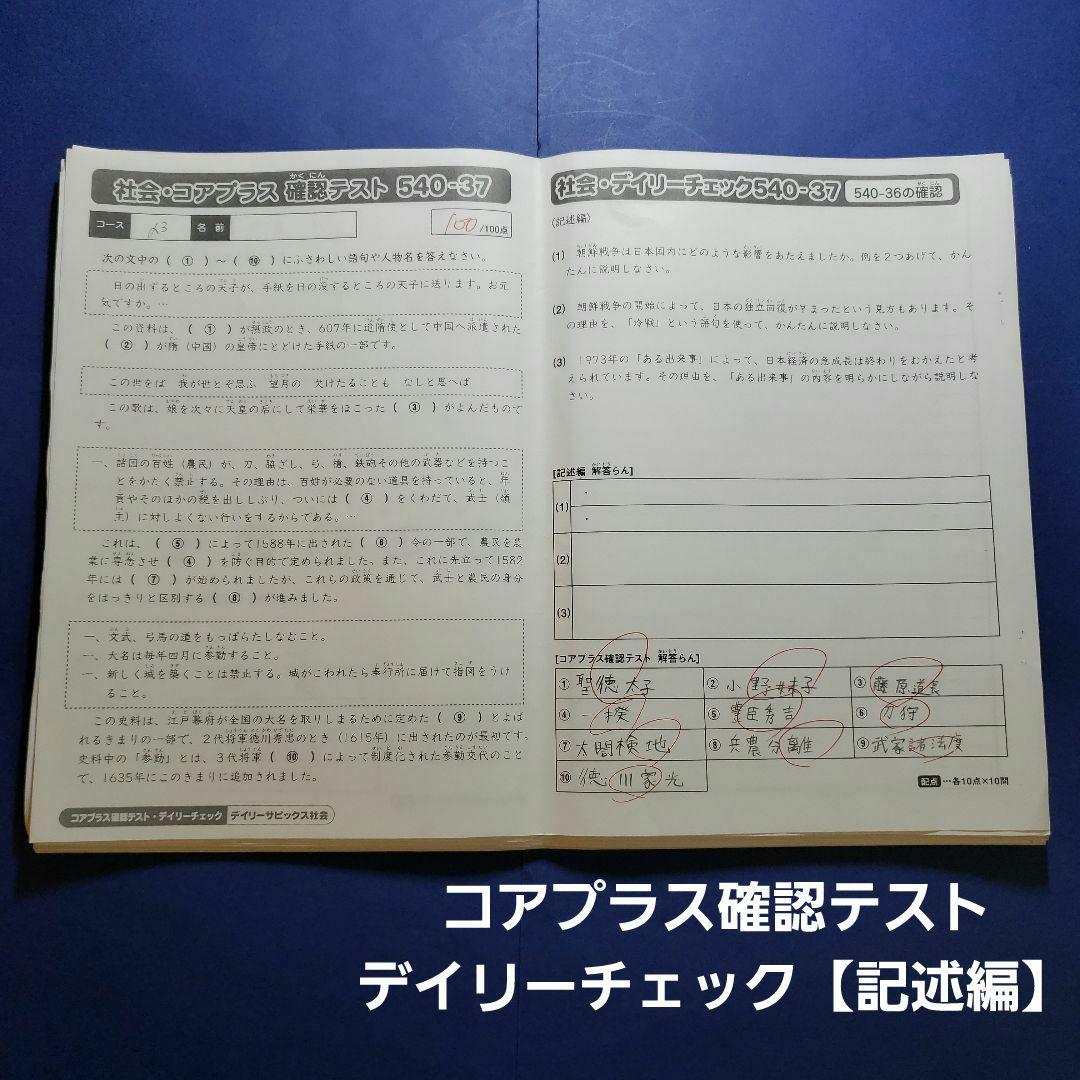 社会・コアプラス 確認テスト 540-37
コース 23 名前 100 /100点
次の文中の（ ① ）～（ ⑩ ）にふさわしい語句や人物名を答えなさい。
日の出ずるところの天子が、手紙を日の没するところの天子に送ります。お元
気ですか。…
この資料は、（ ① ）が摂政のとき、607年に遣隋使として中国へ派遣された
（ ② ）が隋（中国）の皇帝にとどけた手紙の一部です。
この世をば 我が世とぞ思ふ 望月の 欠けたることも なしと思へば
この歌は、娘を次々に天皇の后にして栄華をほこった（ ③ ）がよんだもので
す。
一、諸国の百姓（農民）が、刀、脇ざし、弓、槍、鉄砲その他の武器などを持つこ
とをかたく禁止する。その理由は、百姓が必要のない道具を持っていると、年
貢やそのほかの税を出ししぶり、ついには（ ④ ）をくわだて、武士（領
主）に対しよくない行いをするからである。…
これは、（ ⑤ ）によって1588年に出された（ ⑥ ）令の一部で、農民を農
業に専念させ（ ④ ）を防ぐ目的で定められました。また、これに先立って1582
年には（ ⑦ ）が始められましたが、これらの政策を通じて、武士と農民の身分
をはっきりと区別する（ ⑧ ）が進みました。
一、文武、弓馬の道をもっぱらたしなむこと。
一、大名は毎年四月に参勤すること。
一、新しく城を築くことは禁止する。城がこわれたら奉行所に届けて指図をうけ
ること。
この史料は、江戸幕府が全国の大名を取りしまるために定めた（ ⑨ ）とよば
れるきまりの一部で、2代将軍徳川秀忠のとき（1615年）に出されたのが最初です。
史料中の「参勤」とは、3代将軍（ ⑩ ）によって制度化された参勤交代のこと
で、1635年にこのきまりに追加されました。
コアプラス確認テスト・デイリーチェック デイリーサピックス社会
社会・デイリーチェック540-37 540-36の確認
（記述編）
(1) 朝鮮戦争は日本国内にどのような影響をあたえましたか。例を2つあげて、かん
たんに説明しなさい。
(2) 朝鮮戦争の開始によって、日本の独立回復が早まったという見方もあります。そ
の理由を、「冷戦」という語句を使って、かんたんに説明しなさい。
(3) 1973年の「ある出来事」によって、日本経済の急成長は終わりをむかえたと考
えられています。その理由を、「ある出来事」の内容を明らかにしながら説明しな
さい。
[記述編 解答らん]
(1) ・
・
(2)
(3)
[コアプラス確認テスト 解答らん]
① 聖徳太子 ② 小野妹子 ③ 藤原道長
④ 一揆 ⑤ 豊臣秀吉 ⑥ 刀狩
⑦ 太閤検地 ⑧ 兵農分離 ⑨ 武家諸法度
⑩ 徳川家光 配点…各10点×10問
コアプラス確認テスト
デイリーチェック【記述編】